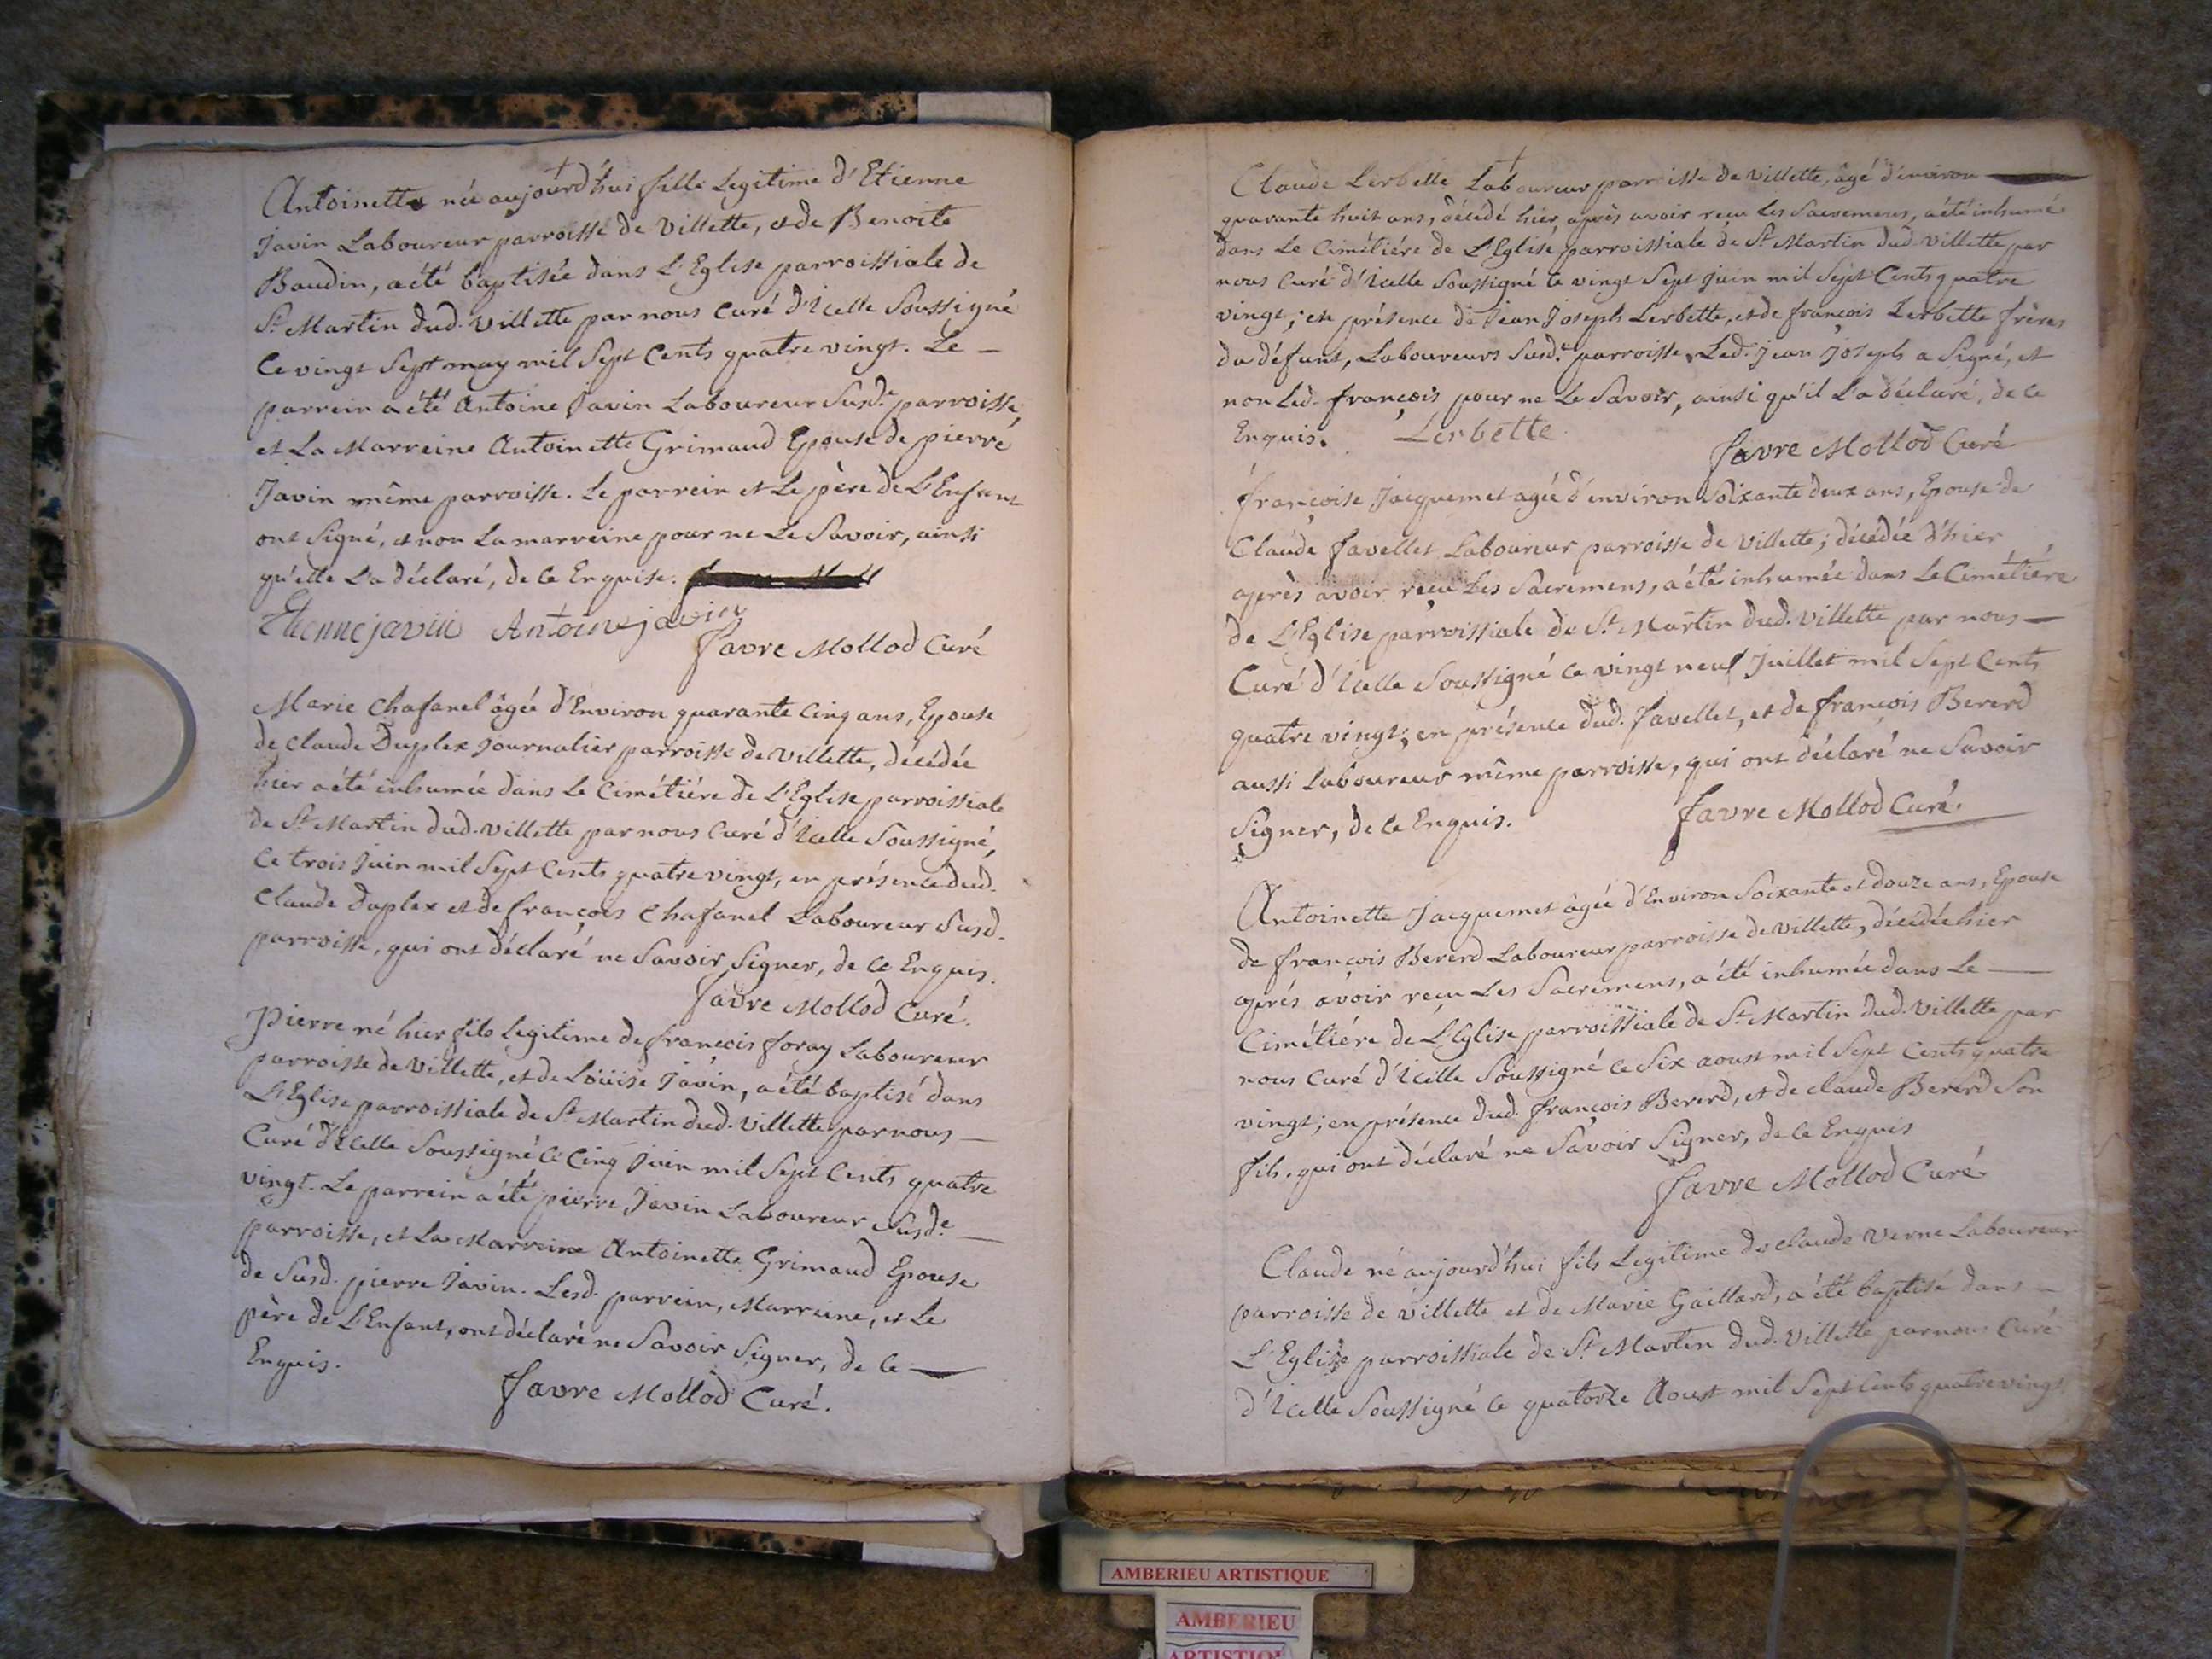 Antoinette née aujourd'hui fille Legitime d'Etienne
Javin Laboureur parroisse de Villette, et de Benoite
Baudin, a été baptisée dans L'Eglise parroissiale de
St. Martin dud. Villette par nous Curé d'Icelle Soussigné
Ce vingt Sept may mil Sept Cents quatre vingt. Le —
parrein a été Antoine Javin Laboureur Susde. parroisse,
et La Marreine Antoinette Grimaud Epouse de pierre
Javin même parroisse. Le parrein et Le père de L'Enfant
ont Signé, et non La marreine pour ne Le Savoir, ainsi
qu'elle L'a déclaré, de Ce Enquise.
Etienne javin Antoine javin
Favre Mollod Curé
Marie Chafanel âgée d'Environ quarante Cinq ans, Epouse
de Claude Duplex Journalier parroisse de Villette, décédée
hier a été inhumée dans Le Cimétiére de L'Eglise parroissiale
de St. Martin dud. Villette par nous Curé d'Icelle Soussigné,
Ce trois Juin mil Sept Cents quatre vingt, en présence dud.
Claude Duplex et de françois Chafanel Laboureur Susd.
parroisse, qui ont déclaré ne Savoir Signer, de Ce Enquis.
Favre Mollod Curé.
Pierre né hier fils Legitime de françois foray Laboureur
parroisse de Villette, et de Loüise Javin, a été baptisé dans
L'Eglise parroissiale de St. Martin dud. Villette par nous —
Curé d'Icelle Soussigné Ce Cinq Juin mil Sept Cents quatre
vingt. Le parrein a été pierre Javin Laboureur Susde. —
parroisse, et La Marreine Antoinette Grimaud Epouse
de Susd. pierre Javin. Lesd. parrein, Marreine, et Le
père de L'Enfant, ont déclaré ne Savoir Signer, de Ce —
Enquis.
Favre Mollod Curé.
Claude Lerbette Laboureur parroisse de Villette, âgé d'environ —
quarante huit ans, décédé hier, après avoir reçu Les Sacremens, a été inhumé
dans Le Cimétiére de L'Eglise parroissiale de St. Martin dud. Villette par
nous Curé d'Icelle Soussigné Ce vingt Sept Juin mil Sept Cents quatre
vingt; en présence de Jean Joseph Lerbette, et de françois Lerbette frères
du défunt, Laboureurs Susde. parroisse, Led. Jean Joseph a Signé, et
non Led. françois pour ne Le Savoir, ainsi qu'il L'a déclaré, de Ce
Enquis. Lerbette
Favre Mollod Curé
françoise Jacquemet agée d'environ Soixante deux ans, Epouse de
Claude Favellet Laboureur parroisse de Villette; décédée d'hier
après avoir reçu Les Sacremens, a été inhumée dans Le Cimétiére
de L'Eglise parroissiale de St. Martin dud. Villette par nous —
Curé d'Icelle Soussigné Ce vingt neuf Juillet mil Sept Cents
quatre vingt; en présence dud. Favellet, et de françois Bererd
aussi Laboureur même parroisse, qui ont déclaré ne Savoir
Signer, de Ce Enquis.
Favre Mollod Curé.
Antoinette Jacquemet âgée d'Environ Soixante et douze ans, Epouse
de françois Bererd Laboureur parroisse de Villette, décédée hier
aprés avoir reçu Les Sacremens, a été inhumée dans Le —
Cimétiére de L'Eglise parroissiale de St. Martin dud. Villette par
nous Curé d'Icelle Soussigné Ce Six aoust mil Sept Cents quatre
vingt; en présence dud. françois Bererd, et de claude Bererd Son
fils. qui ont déclaré ne Savoir Signer, de Ce Enquis
Favre Mollod Curé
Claude né aujourd'hui fils Legitime de Claude Verne Laboureur
parroisse de Villette et de Marie Gaillard, a été baptisé dans —
L'Eglise parroissiale de St. Martin dud. Villette par nous Curé
d'Icelle Soussigné Ce quatorze Aoust mil Sept Cents quatre vingt
AMBERIEU ARTISTIQUE
AMBERIEU
ARTISTIQUE